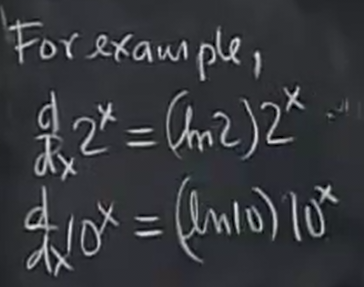 For example,
d/dx 2^x = (ln2)2^x
d/dx 10^x = (ln10)10^x